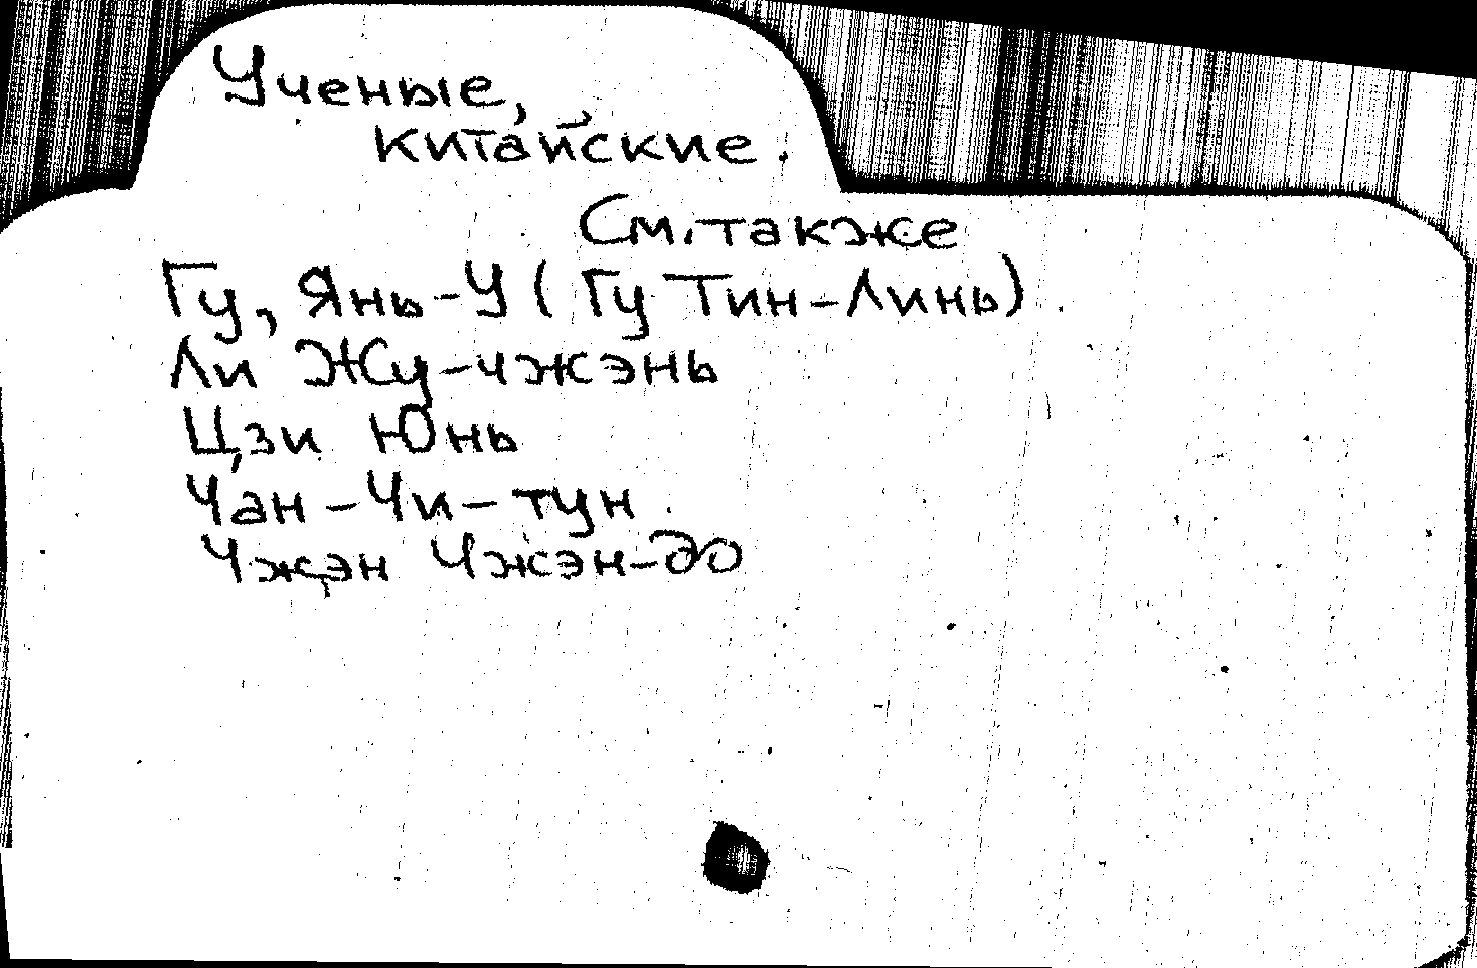 Ученые,
китайские.
См. также
Гу, Янь-У (Гу Тин-Линь)
Ли Жу-чжэнь
Цзи Юнь
Чан-Чи-тун
Чжэн Чжэн-до